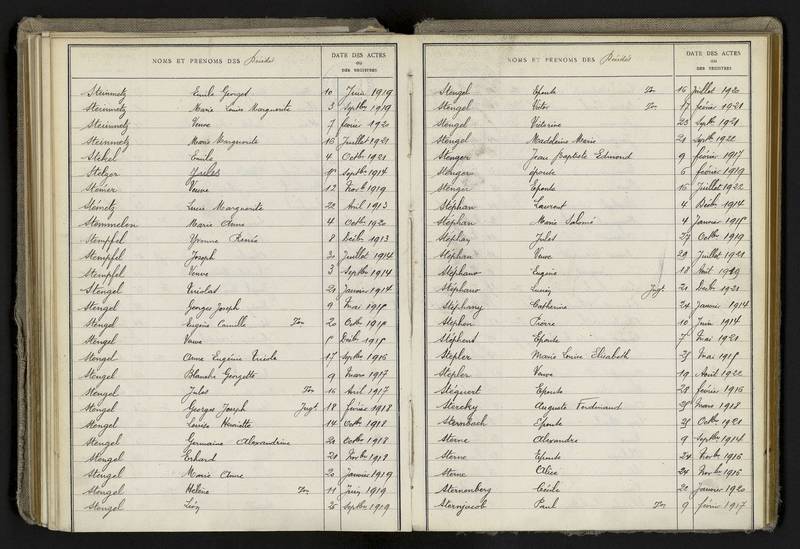 NOMS ET PRENOMS DES Décédés
DATE DES ACTES
OU
DES REGISTRES
Steinmetz Emile Georges 10 Juin 1919
Steinmetz Marie Louise Marguerite 3 Septbre 1919
Steinmetz Veuve 7 février 1920
Steinmetz Marie Marguerite 16 Juillet 1921
Stekel Emile 4 Octbre 1921
Stelzer Jules Septbre 1914
Steimer Veuve 12 Novbre 1919
Steinetz Lucie Marguerite 22 Avril 1913
Stemmelen Marie Anne 4 Octbre 1920
Stempfel Yvonne Renée 8 Décbre 1913
Stempfel Joseph 30 Juillet 1914
Stempfel Veuve 3 Septbre 1914
Stengel Nicolas 21 Janvier 1914
Stengel Georges Joseph 9 Mai
Stengel Eugène Camille Ton 20 Octbre
Stengel Veuve Décbre
Stengel Anne Eugénie Nicole 17 Septbre 1916
Stengel Blanche Georgette 9 Mars 1917
Stengel Jules Ton 16 Avril 1917
Stengel Georges Joseph Jugt 18 février 1918
Stengel Louise Henriette 14 Octbre 1918
Stengel Germaine Alexandrine 21 Octbre 1918
Stengel Erhard 21 Novbre 1918
Stengel Marie Anne 20 Janvier 1919
Stengel Helène Ton 11 Juin 1919
Stengel Léon 25 Septbre 1919
NOMS ET PRENOMS DES Décédés
DATE DES ACTES
OU
DES REGISTRES
Stengel Epouse Ton 16 Juillet 1920
Stengel Victor Ton 17 février 1921
Stengel Victorine 23 Septbre 1921
Stengel Madeleine Marie 21 Septbre 1922
Stenger Jean Baptiste Edmond 9 février 1917
Stenger épouse 6 février 1919
Stenger Epouse 15 Juillet 1922
Stéphan Laurent 4 Décbre 1914
Stéphan Marie Salomé 4 Janvier
Stéphan Jules 27 Octbre 1919
Stéphan Veuve 20 Juillet 1921
Stéphano Eugène 18 Août 1919
Stéphano Lucien Jugt 21 Décbre 1921
Stéphany Catherine 24 Janvier 1914
Stephen Pierre 10 Juin 1914
Stéphens Epouse 7 Mai 1921
Stepler Marie Louise Elisabeth Mai
Stepler Veuve 19 Avril 1922
Stéquert Epouse 28 février 1916
Sterchy Auguste Ferdinand Mars 1918
Sternbach Epouse Octbre 1921
Sterne Alexandre 9 Septbre 1914
Sterne Epouse 24 Novbre 1916
Sterne Alice 24 Novbre 1916
Sternenberg Cécile 20 Janvier 1920
Sternjacob Paul Ton 9 février 1917